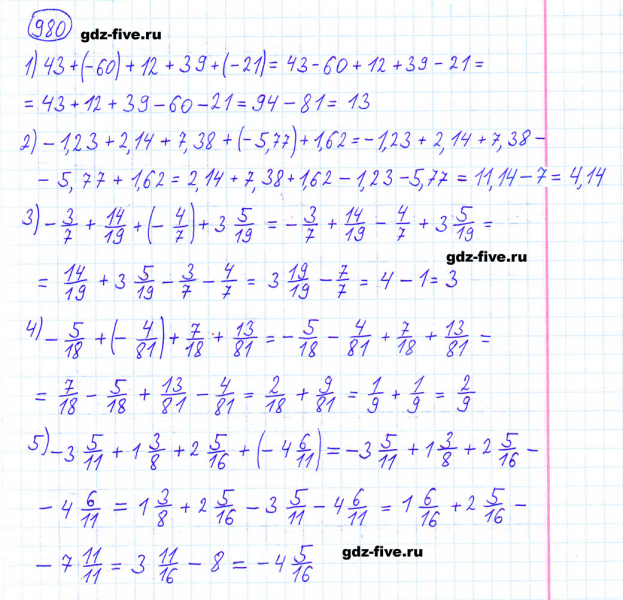 980 gdz-five.ru
1) 43 + (-60) + 12 + 39 + (-21) = 43 - 60 + 12 + 39 - 21 =
= 43 + 12 + 39 - 60 - 21 = 94 - 81 = 13
2) - 1,23 + 2,14 + 7,38 + (-5,77) + 1,62 = -1,23 + 2,14 + 7,38 -
- 5,77 + 1,62 = 2,14 + 7,38 + 1,62 - 1,23 - 5,77 = 11,14 - 7 = 4,14
3) - 3/7 + 14/19 + (- 4/7) + 3 5/19 = - 3/7 + 14/19 - 4/7 + 3 5/19 =
gdz-five.ru
= 14/19 + 3 5/19 - 3/7 - 4/7 = 3 19/19 - 7/7 = 4 - 1 = 3
4) - 5/18 + (- 4/81) + 7/18 + 13/81 = - 5/18 - 4/81 + 7/18 + 13/81 =
= 7/18 - 5/18 + 13/81 - 4/81 = 2/18 + 9/81 = 1/9 + 1/9 = 2/9
5) - 3 5/11 + 1 3/8 + 2 5/16 + (- 4 6/11) = - 3 5/11 + 1 3/8 + 2 5/16 -
- 4 6/11 = 1 3/8 + 2 5/16 - 3 5/11 - 4 6/11 = 1 6/16 + 2 5/16 -
- 7 11/11 = 3 11/16 - 8 = - 4 5/16
gdz-five.ru